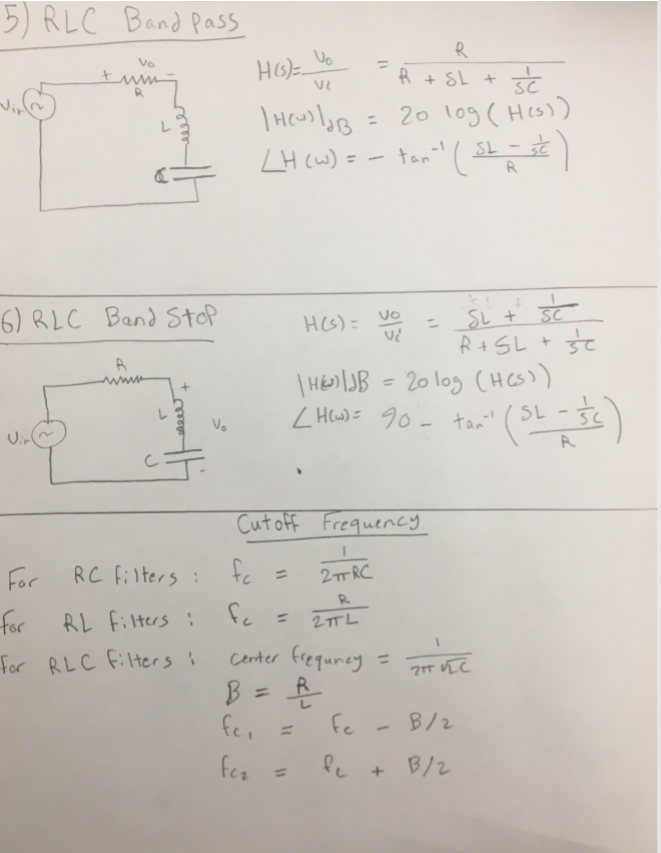 5) RLC Bandpass
+ Vo -
R
Vin ~
L
C
H(s) = Vo/Vi = R / (R + SL + 1/SC)
|H(w)|dB = 20 log(H(s))
∠H(w) = - tan⁻¹ ((SL - 1/SC) / R)
6) RLC Band Stop
R
+
L
Vo
Vin ~
C
-
H(s) = Vo/Vi = (SL + 1/SC) / (R + SL + 1/SC)
|H(w)|dB = 20 log (H(s))
∠H(w) = 90 - tan⁻¹ ((SL - 1/SC) / R)
Cutoff Frequency
For RC filters : fc = 1 / 2πRC
for RL filters : fc = R / 2πL
for RLC filters : center frequncy = 1 / 2π√LC
B = R/L
fc1 = fc - B/2
fc2 = fc + B/2